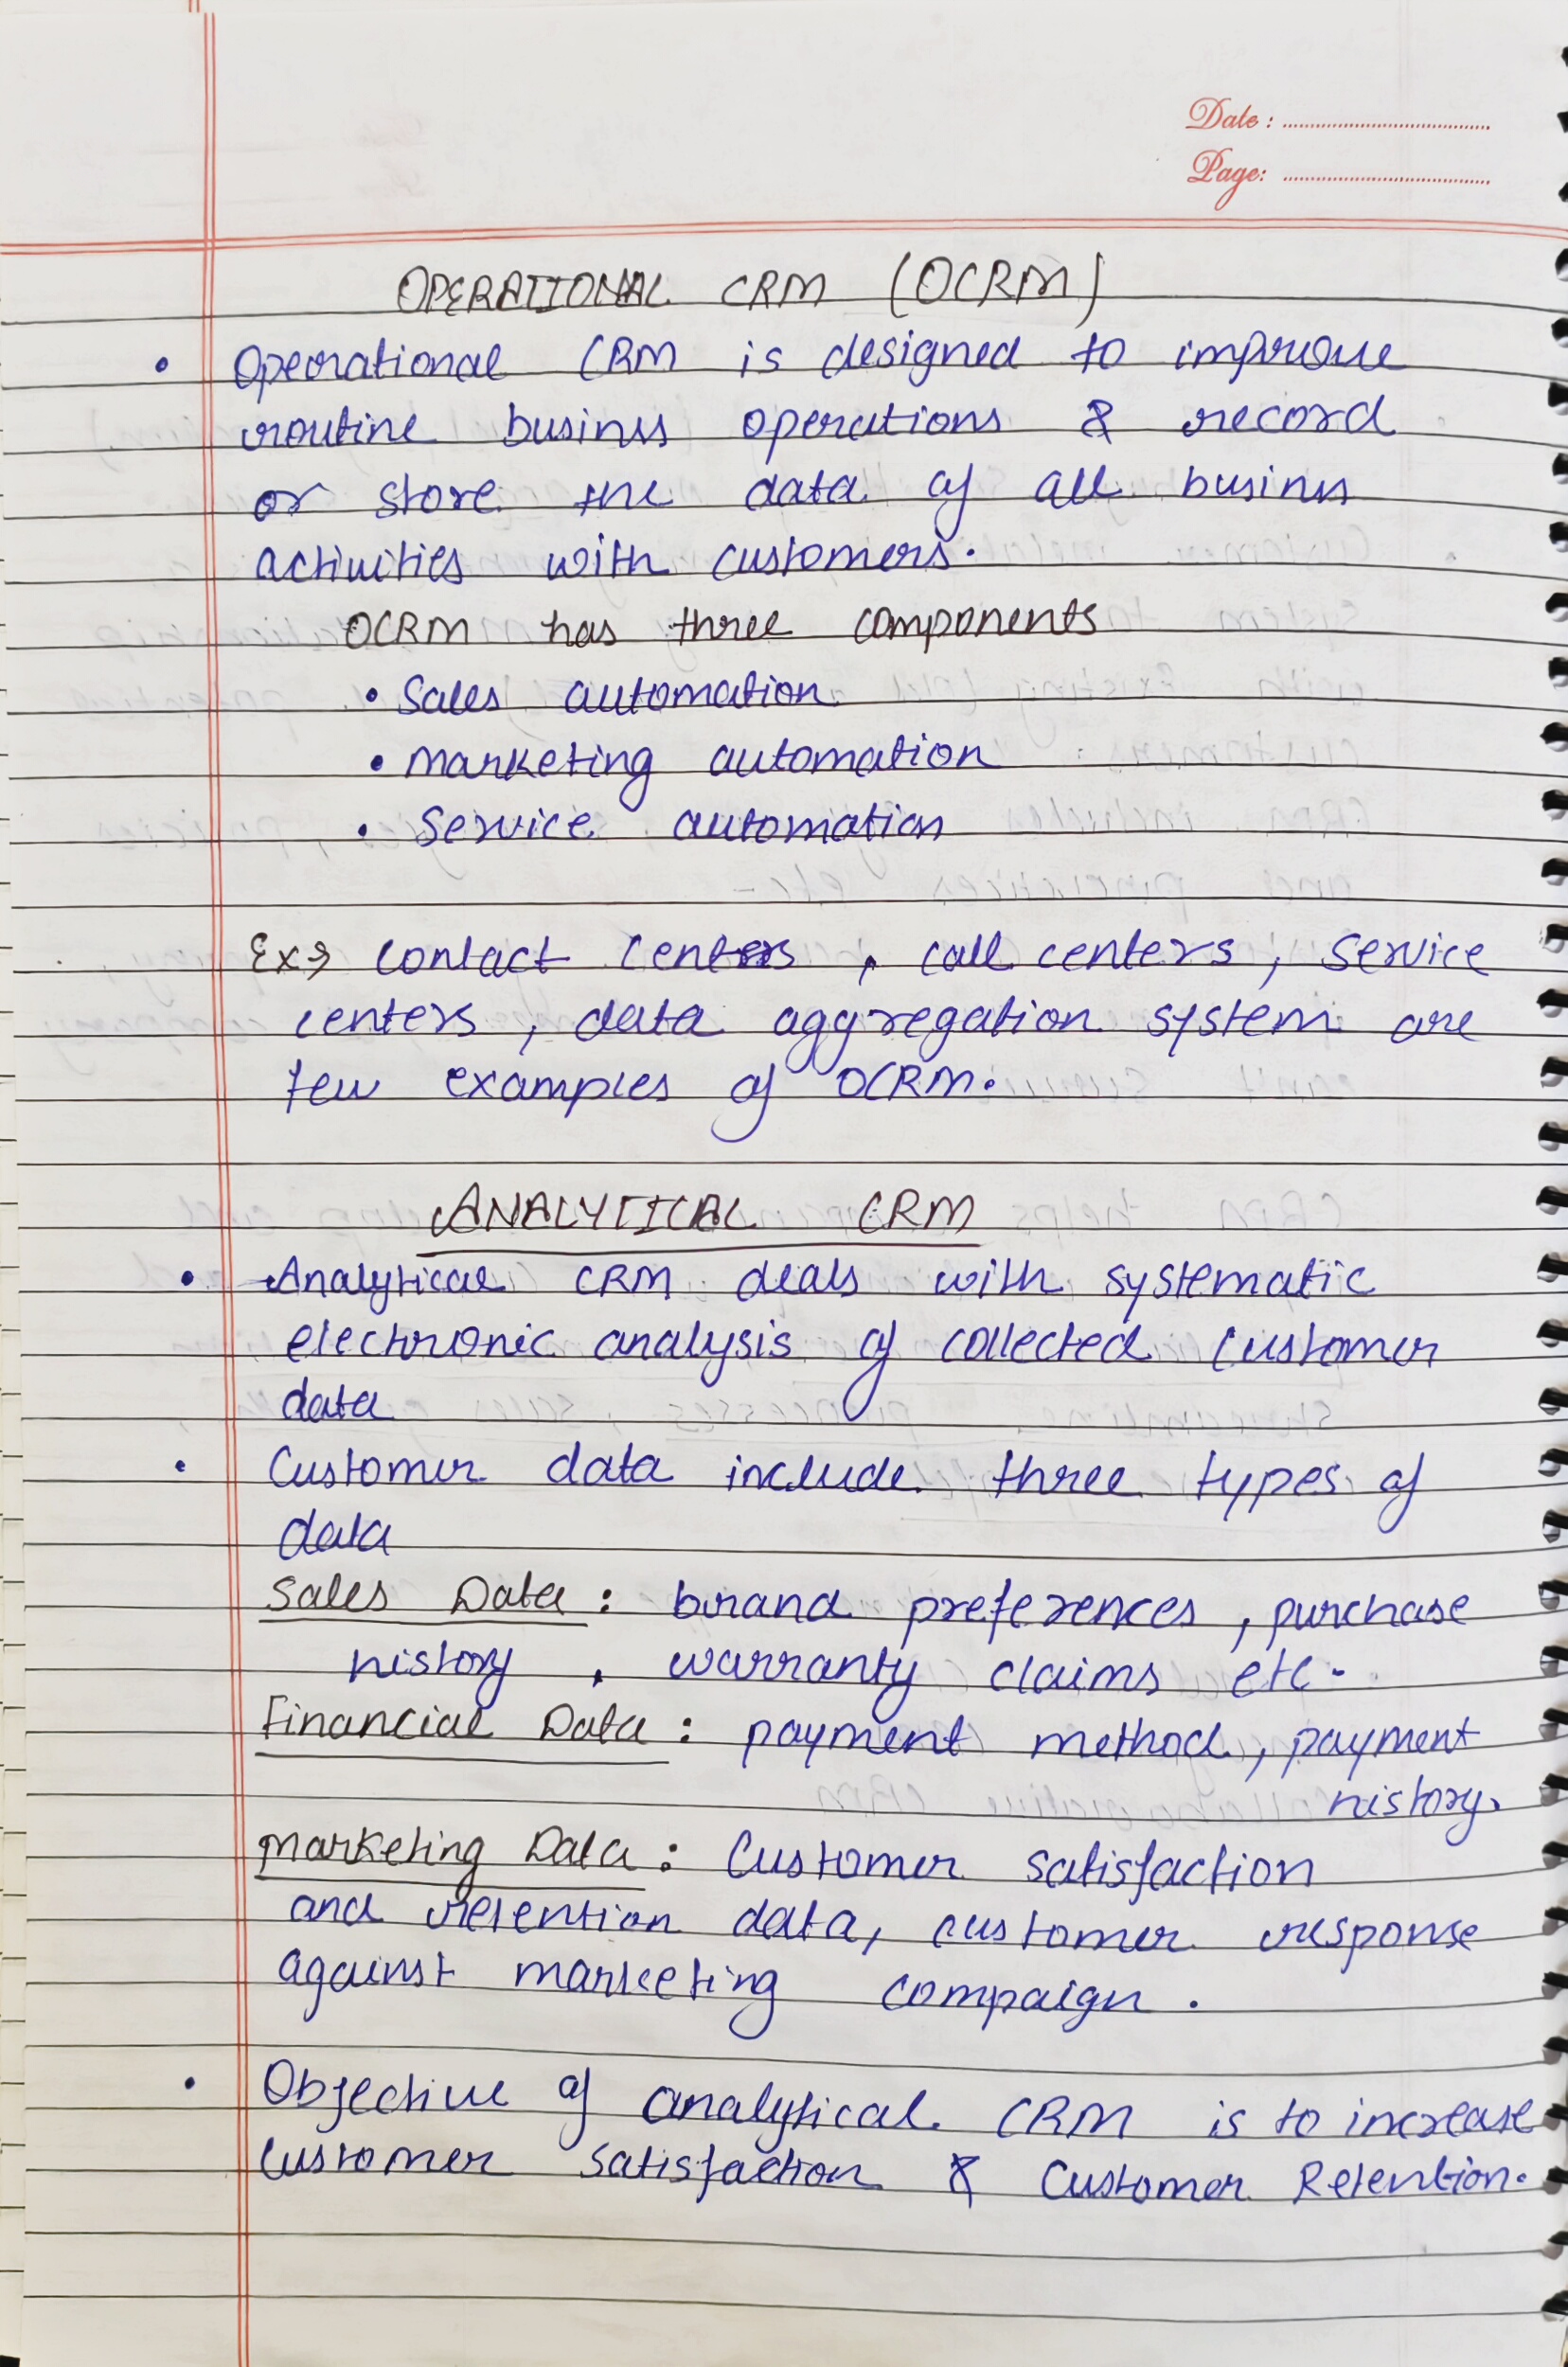 Date :
Page:
OPERATIONAL CRM (OCRM)
• Operational CRM is designed to improve
routine business operations & record
or store the data of all business
activities with customers.
OCRM has three components
• Sales automation
• marketing automation
• Service automation
Ex→ Contact Centers , call centers, service
centers, data aggregation system are
few examples of OCRM.
ANALYTICAL CRM
• Analytical CRM deals with systematic
electronic analysis of collected customer
data
• Customer data include three types of
data
Sales Data : brand preferences, purchase
history , warranty claims etc.
Financial Data : payment method, payment
history.
marketing Data : Customer satisfaction
and retention data, customer response
against marketing compaign.
• Objective of analytical CRM is to increase
customer satisfaction & Customer Retention.